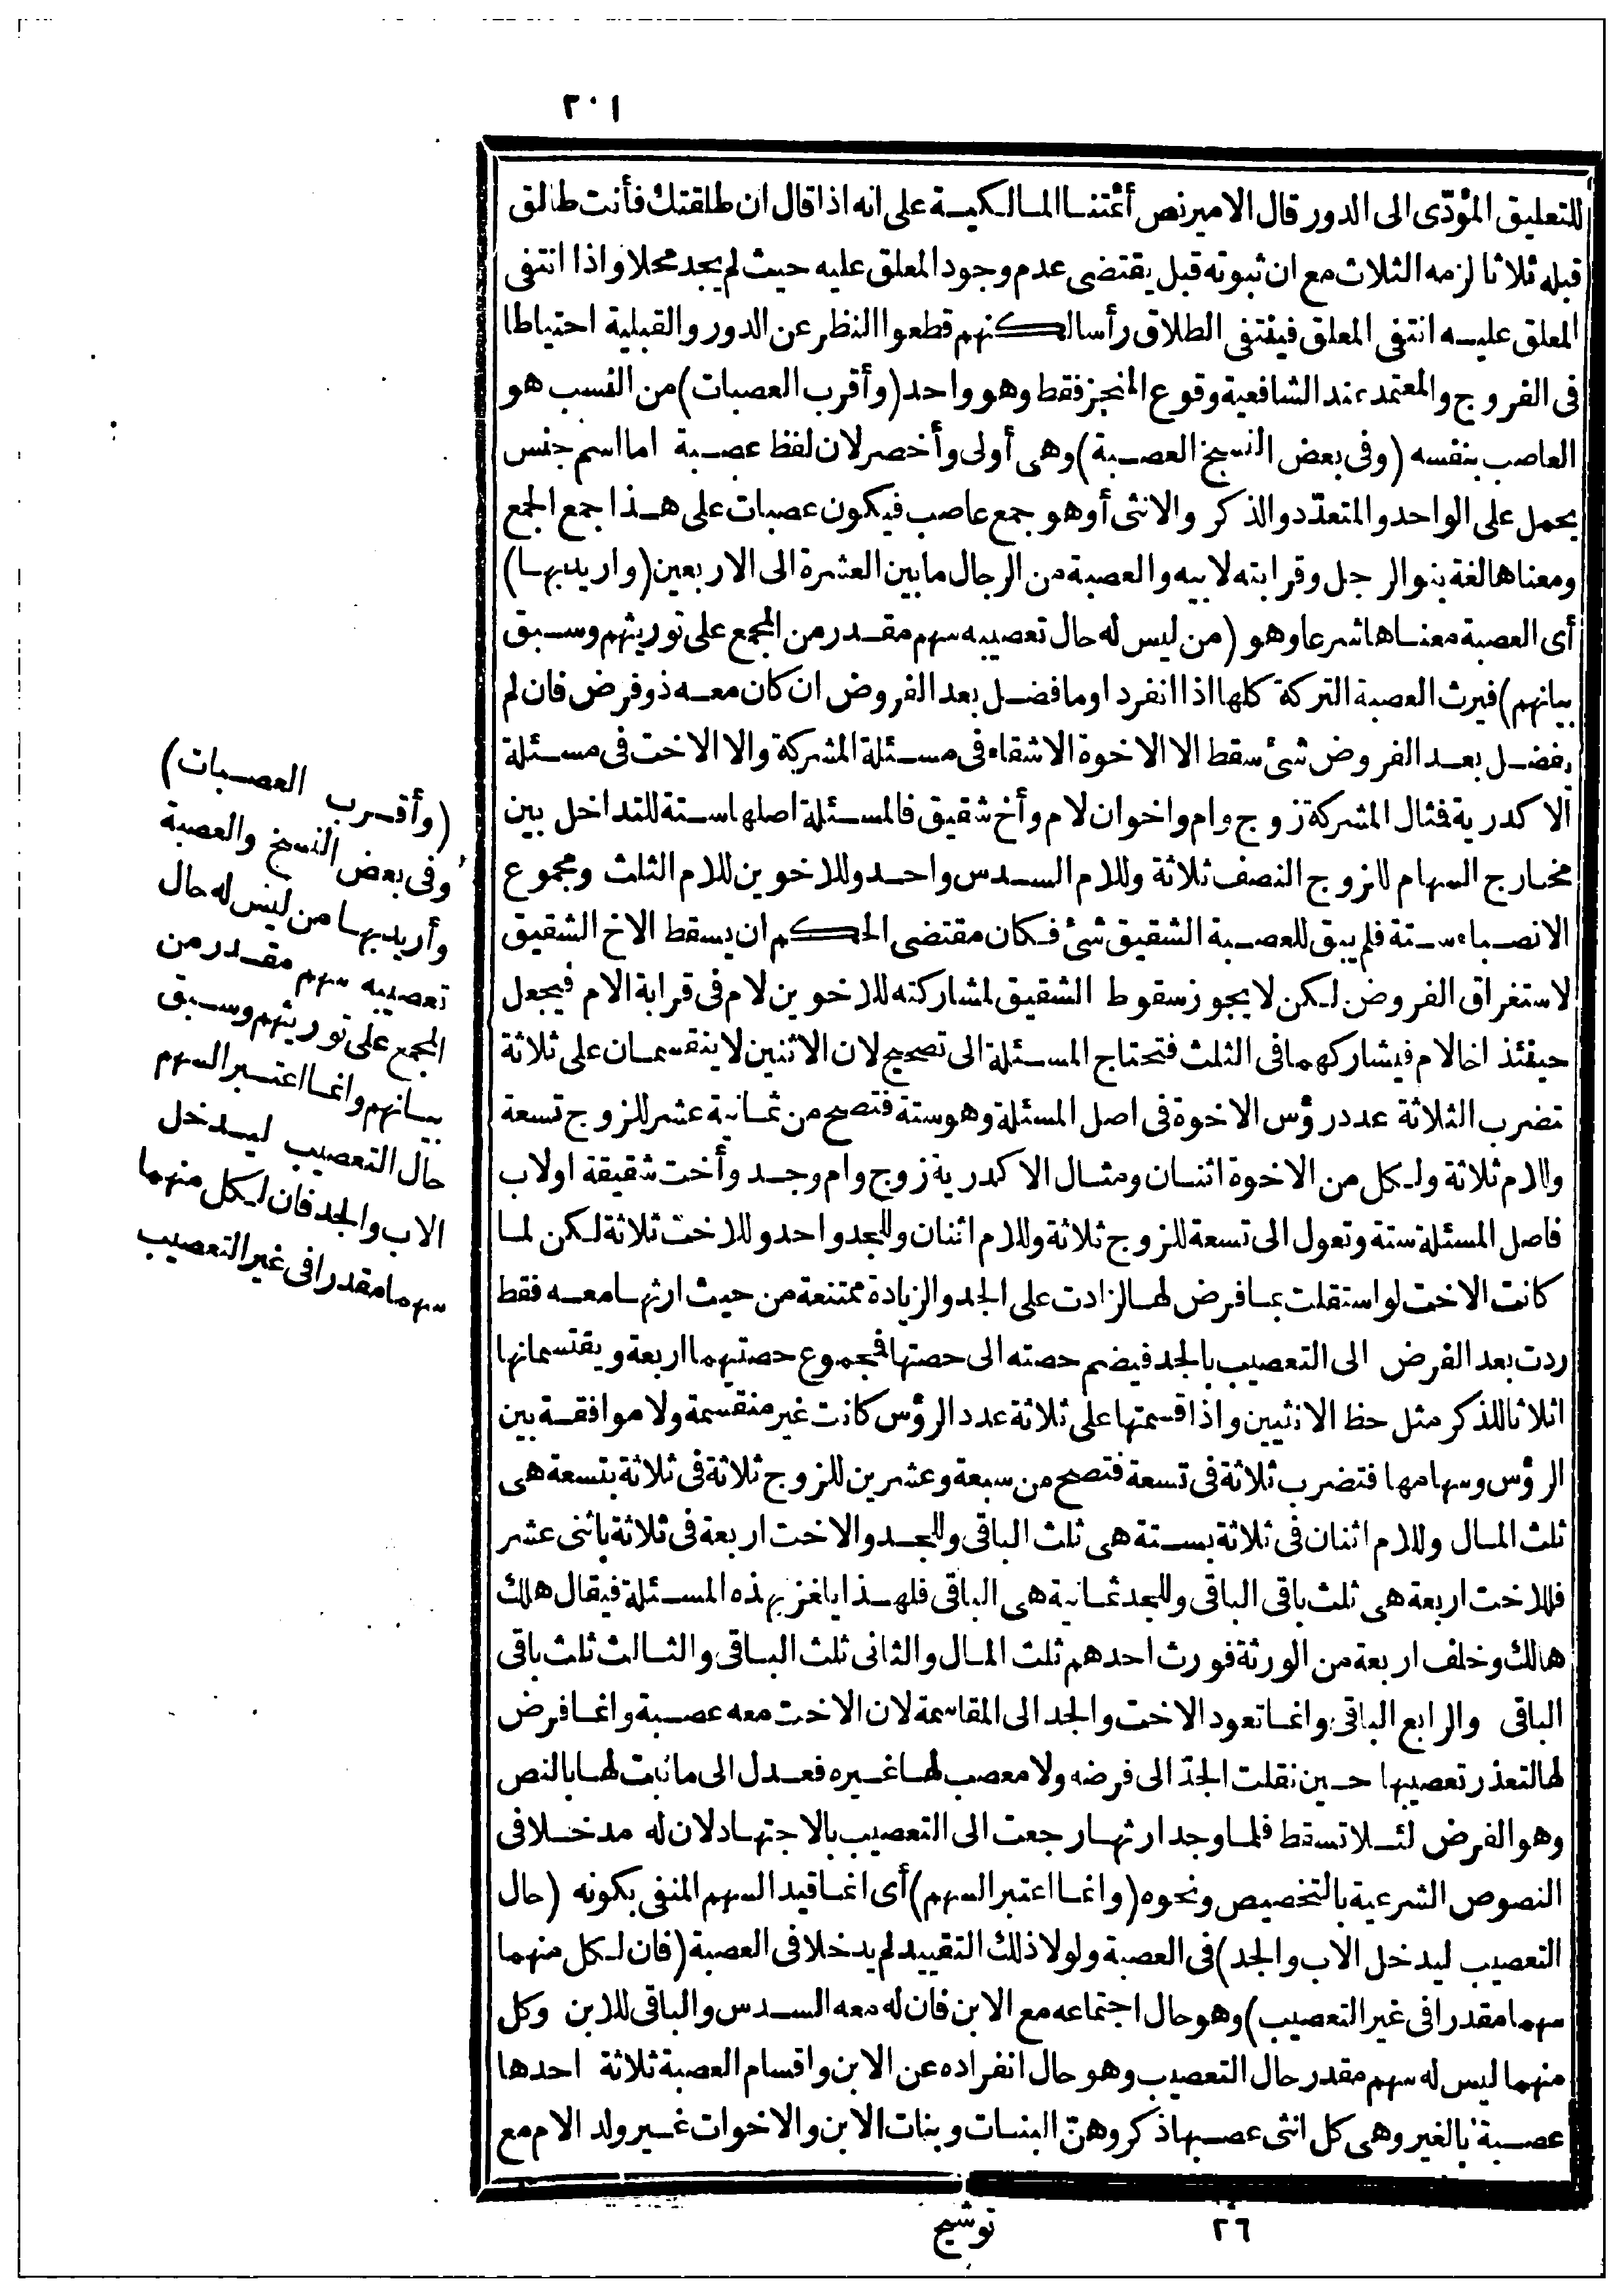 ٢٠١
للتعليق المؤدّى الى الدور قال الامير نص أئمتنا المالكية على انه اذا قال ان طلقتك فأنت طالق
قبله ثلاثا لزمه الثلاث مع ان ثبوته قبل يقتضى عدم وجود المعلق عليه حيث لم يجد محلا واذا انتفى
المعلق عليه انتفى المعلق فينتفى الطلاق رأسا لكنهم قطعوا النظر عن الدور والقبلية احتياطا
فى الفروج والمعتمد عند الشافعية وقوع المنجز فقط وهو واحد (وأقرب العصبات) من النسب هو
العاصب بنفسه (وفى بعض النسخ العصبة) وهى أولى وأخصر لان لفظ عصبة اما اسم جنس
يحمل على الواحد والمتعدّد والذكر والانثى أو هو جمع عاصب فيكون عصبات على هذا جمع الجمع
ومعناها لغة بنو الرجل وقرابته لابيه والعصبة من الرجال ما بين العشرة الى الاربعين (واريد بها)
أى العصبة معناها شرعا وهو (من ليس له حال تعصيبه سهم مقدر من المجمع على توريثهم وسبق
بيانهم) فيرث العصبة التركة كلها اذا انفرد او ما فضل بعد الفروض ان كان معه ذو فرض فان لم
يفضل بعد الفروض شئ سقط الا الاخوة الاشقاء فى مسئلة المشركة والا الاخت فى مسئلة
الاكدرية فمثال المشركة زوج وام واخوان لام وأخ شقيق فالمسئلة اصلها ستة للتداخل بين
مخارج السهام للزوج النصف ثلاثة وللام السدس واحد وللاخوين للام الثلث ومجموع
الانصباء ستة فلم يبق للعصبة الشقيق شئ فكان مقتضى الحكم ان يسقط الاخ الشقيق
لاستغراق الفروض لكن لا يجوز سقوط الشقيق لمشاركته للاخوين لام فى قرابة الام فيجعل
حينئذ اخا لام فيشاركهما فى الثلث فتحتاج المسئلة الى تصحيح لان الاثنين لا ينقسمان على ثلاثة
تضرب الثلاثة عدد رؤس الاخوة فى اصل المسئلة وهو ستة فتصح من ثمانية عشر للزوج تسعة
وللام ثلاثة ولكل من الاخوة اثنان ومثال الاكدرية زوج وام وجد وأخت شقيقة او لاب
فاصل المسئلة ستة وتعول الى تسعة للزوج ثلاثة وللام اثنان وللجد واحد وللاخت ثلاثة لكن لما
كانت الاخت لو استقلت بما فرض لها لزادت على الجد والزيادة ممتنعة من حيث ارثها معه فقط
ردت بعد الفرض الى التعصيب بالجد فيضم حصته الى حصتها فمجموع حصتيهما اربعة ويقتسمانها
اثلاثا للذكر مثل حظ الانثيين واذا قسمتها على ثلاثة عدد الرؤس كانت غير منقسمة ولا موافقة بين
الرؤس وسهامها فتضرب ثلاثة فى تسعة فتصح من سبعة وعشرين للزوج ثلاثة فى ثلاثة بتسعة هى
ثلث المال وللام اثنان فى ثلاثة بستة هى ثلث الباقى وللجد والاخت اربعة فى ثلاثة باثنى عشر
فللاخت اربعة هى ثلث باقى الباقى وللجد ثمانية هى الباقى فلهذا يلغز بهذه المسئلة فيقال هلك
هالك وخلف اربعة من الورثة فورث احدهم ثلث المال والثانى ثلث الباقى والثالث ثلث باقى
الباقى والرابع الباقى وانما تعود الاخت والجد الى المقاسمة لان الاخت معه عصبة وانما فرض
لها لتعذر تعصيبها حين نقلت الجدّ الى فرضه ولا معصب لها غيره فعدل الى ما ثبت لها بالنص
وهو الفرض لئلا تسقط فلما وجد ارثها رجعت الى التعصيب بالاجتهاد لان له مدخلا فى
النصوص الشرعية بالتخصيص ونحوه (وانما اعتبر السهم) أى انما قيد السهم المنفى بكونه (حال
التعصيب ليدخل الاب والجد) فى العصبة ولولا ذلك التقييد لم يدخلا فى العصبة (فان لكل منهما
سهما مقدرا فى غير التعصيب) وهو حال اجتماعه مع الابن فان له معه السدس والباقى للابن وكل
منهما ليس له سهم مقدر حال التعصيب وهو حال انفراده عن الابن واقسام العصبة ثلاثة احدها
عصبة بالغير وهى كل انثى عصبها ذكر وهنّ البنات وبنات الابن والاخوات غير ولد الام مع
(وأقرب العصبات)
وفى بعض النسخ والعصبة
وأريد بها من ليس له حال
تعصيبه سهم مقدر من
المجمع على توريثهم وسبق
بيانهم وانما اعتبر السهم
حال التعصيب ليدخل
الاب والجد فان لكل منهما
سهما مقدرا فى غير التعصيب
٢٦ توشيح